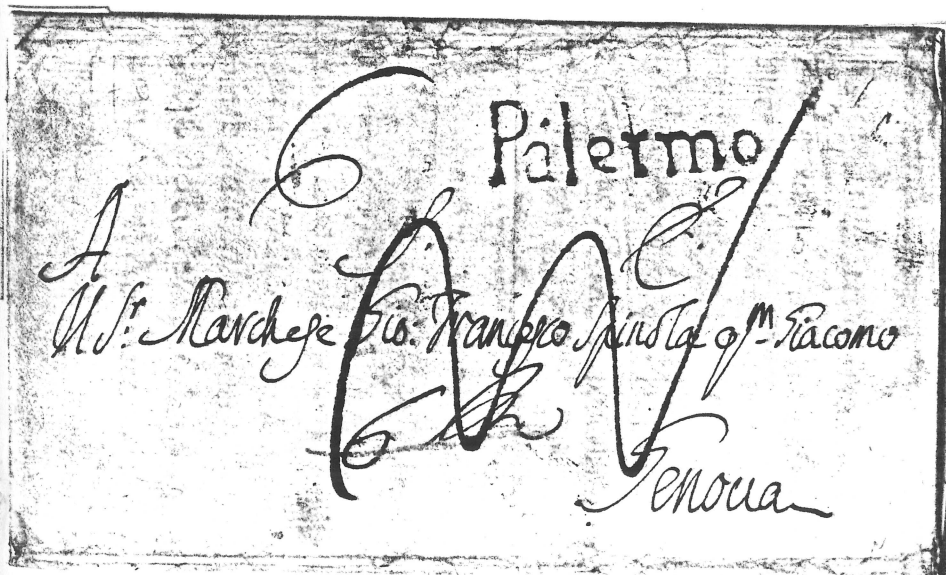 Palermo
A
Il Sr. Marchese Gio: Francesco Spinola qm. Giacomo
Genoua